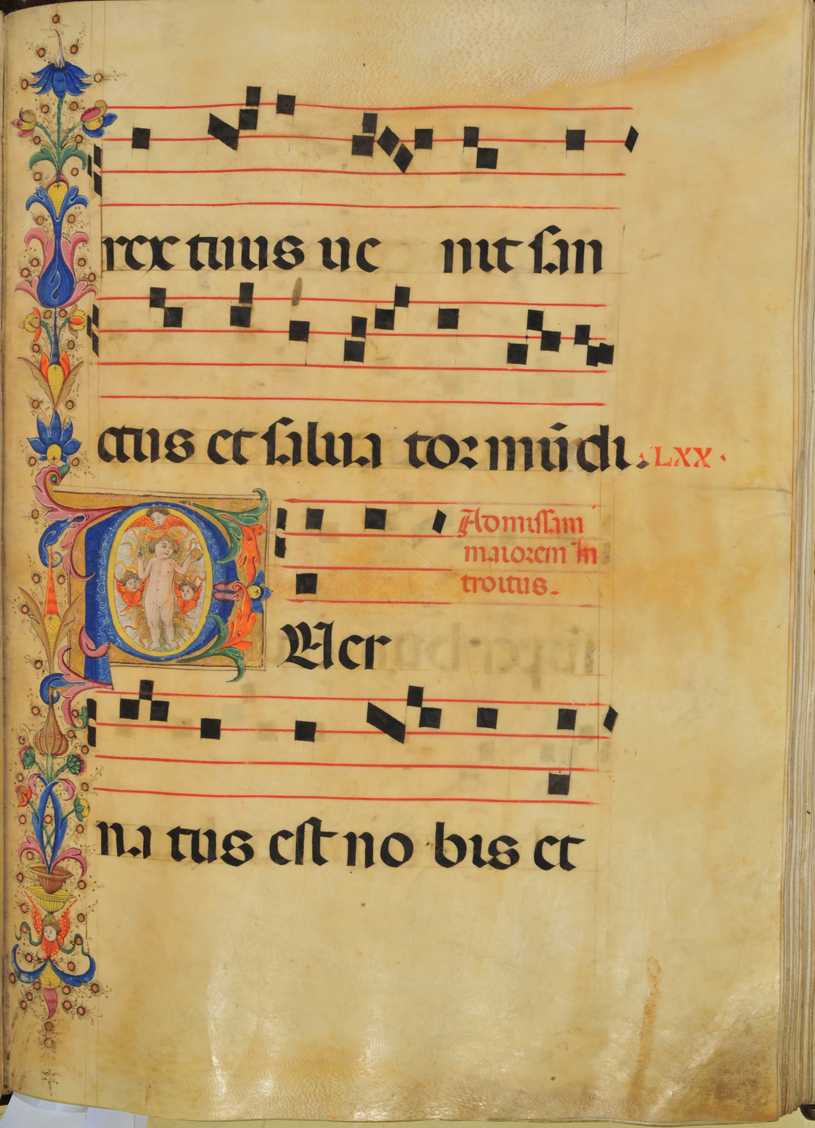 rex tuus ue nit san
ctus et salua tor mūdi. LXX
Ad missam
maiorem In
troitus.
PUer
na tus est no bis et